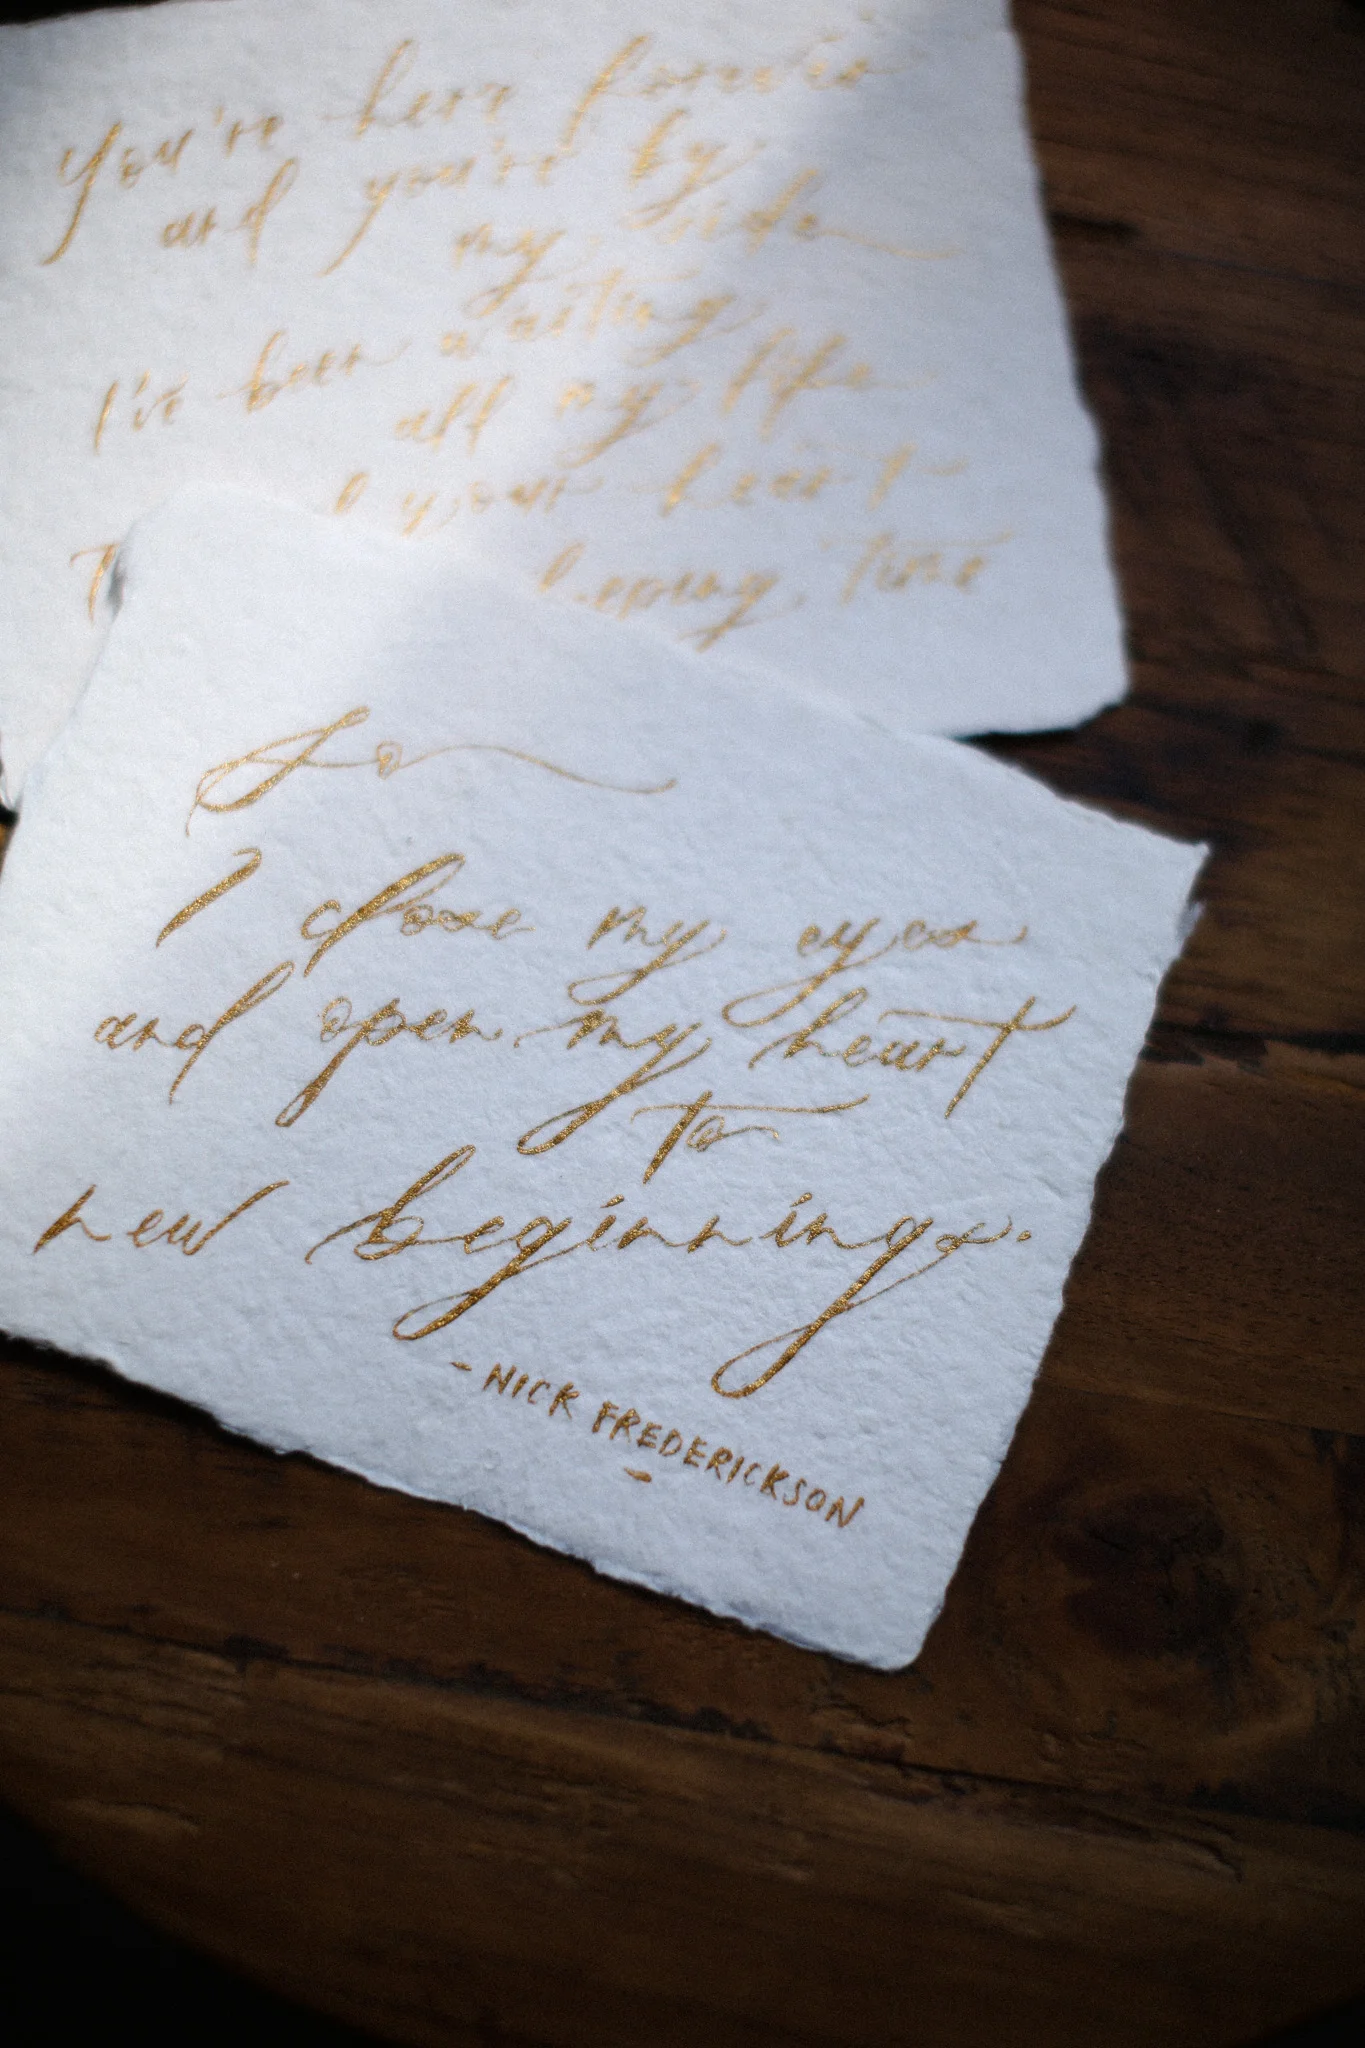 You're here forever
and you're by
my side
I've been waiting
all my life
your heart
keeping time
So
I close my eyes
and open my heart
to
new beginnings.
- NICK FREDERICKSON